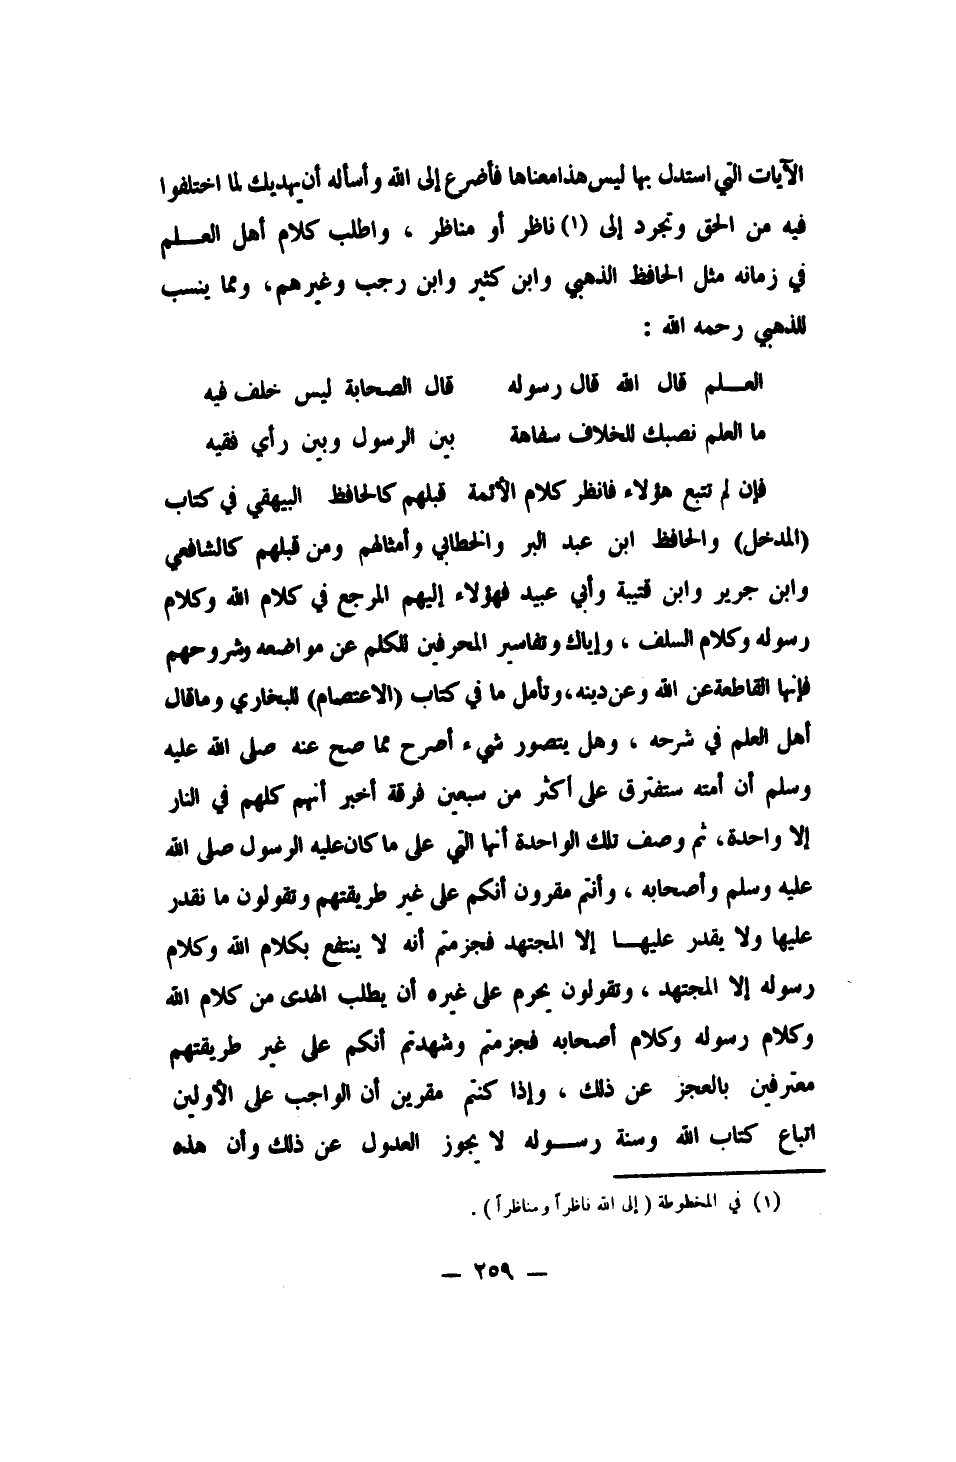 الآيات التي استدل بها ليس هذا معناها فأضرع إلى الله وأسأله أن يهديك لما اختلفوا
فيه من الحق وتجرد إلى (١) ناظر أو مناظر ، واطلب كلام أهل العـــلم
في زمانه مثل الحافظ الذهبي وابن كثير وابن رجب وغيرهم، ومما ينسب
للذهبي رحمه الله :
العـــلم قال الله قال رسوله قال الصحابة ليس خلف فيه
ما العلم نصبك للخلاف سفاهة بين الرسول وبين رأي فقيه
فإن لم تتبع هؤلاء فانظر كلام الأئمة قبلهم كالحافظ البيهقي في كتاب
(المدخل) والحافظ ابن عبد البر والخطابي وأمثالهم ومن قبلهم كالشافعي
وابن جرير وابن قتيبة وأبي عبيد فهؤلاء إليهم المرجع في كلام الله وكلام
رسوله وكلام السلف ، وإياك وتفاسير المحرفين للكلم عن مواضعه وشروحهم
فإنها القاطعة عن الله وعن دينه، وتأمل ما في كتاب (الاعتصام) للبخاري وما قال
أهل العلم في شرحه ، وهل يتصور شيء أصرح مما صح عنه صلى الله عليه
وسلم أن أمته ستفترق على أكثر من سبعين فرقة أخبر أنهم كلهم في النار
إلا واحدة، ثم وصف تلك الواحدة أنها التي على ما كان عليه الرسول صلى الله
عليه وسلم وأصحابه ، وأنتم مقرون أنكم على غير طريقتهم وتقولون ما نقدر
عليها ولا يقدر عليهـــا إلا المجتهد فجزمتم أنه لا ينتفع بكلام الله وكلام
رسوله إلا المجتهد ، وتقولون يحرم على غيره أن يطلب الهدى من كلام الله
وكلام رسوله وكلام أصحابه فجزمتم وشهدتم أنكم على غير طريقتهم
معترفين بالعجز عن ذلك ، وإذا كنتم مقرين أن الواجب على الأولين
اتباع كتاب الله وسنة رســـوله لا يجوز العدول عن ذلك وأن هذه
(١) في المخطوطة ( إلى الله ناظراً ومناظراً ) .
— ٢٥٩ —